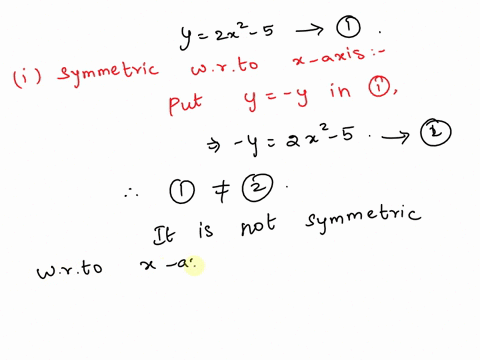 y = 2x² - 5 → ①.
(i) Symmetric w.r.to x-axis:-
Put y = -y in ①,
⇒ -y = 2x² - 5. → ②
∴ ① ≠ ②.
It is not symmetric
w.r.to x-a